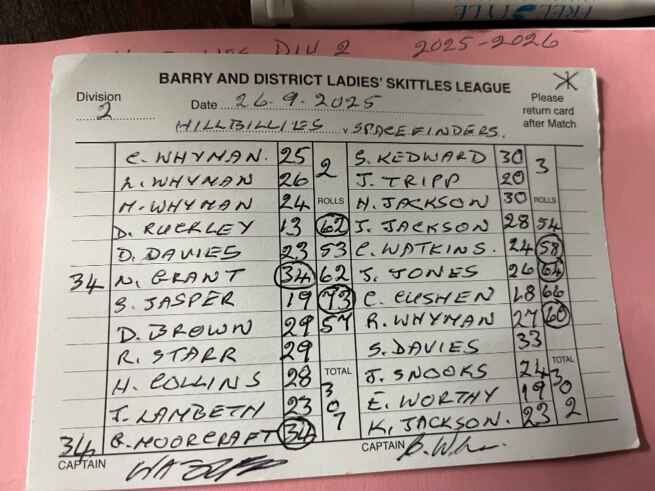 DIV 2 2025-2026
BARRY AND DISTRICT LADIES' SKITTLES LEAGUE
Division 2
Date 26.9.2025
Please return card after Match
HILLBILLIES v SPACEFINDERS.
C. WHYMAN. 25 2 S. KEDWARD 30 3
A. WHYMAN 26 J. TRIPP 20
M. WHYMAN 24 ROLLS H. JACKSON 30 ROLLS
D. RUCKLEY 13 62 J. JACKSON 28 54
D. DAVIES 23 53 C. WATKINS. 24 58
34 N. GRANT 34 62 J. JONES 26 64
S. JASPER 19 73 C. CUSHEN 18 66
D. BROWN 29 57 R. WHYMAN 27 60
R. STARR 29 S. DAVIES 33
H. COLLINS 28 TOTAL J. SNOOKS 24 TOTAL
J. LAMBETH 23 307 E. WORTHY 19 302
34 B. MOORCRAFT 34 K. JACKSON. 23
CAPTAIN CAPTAIN